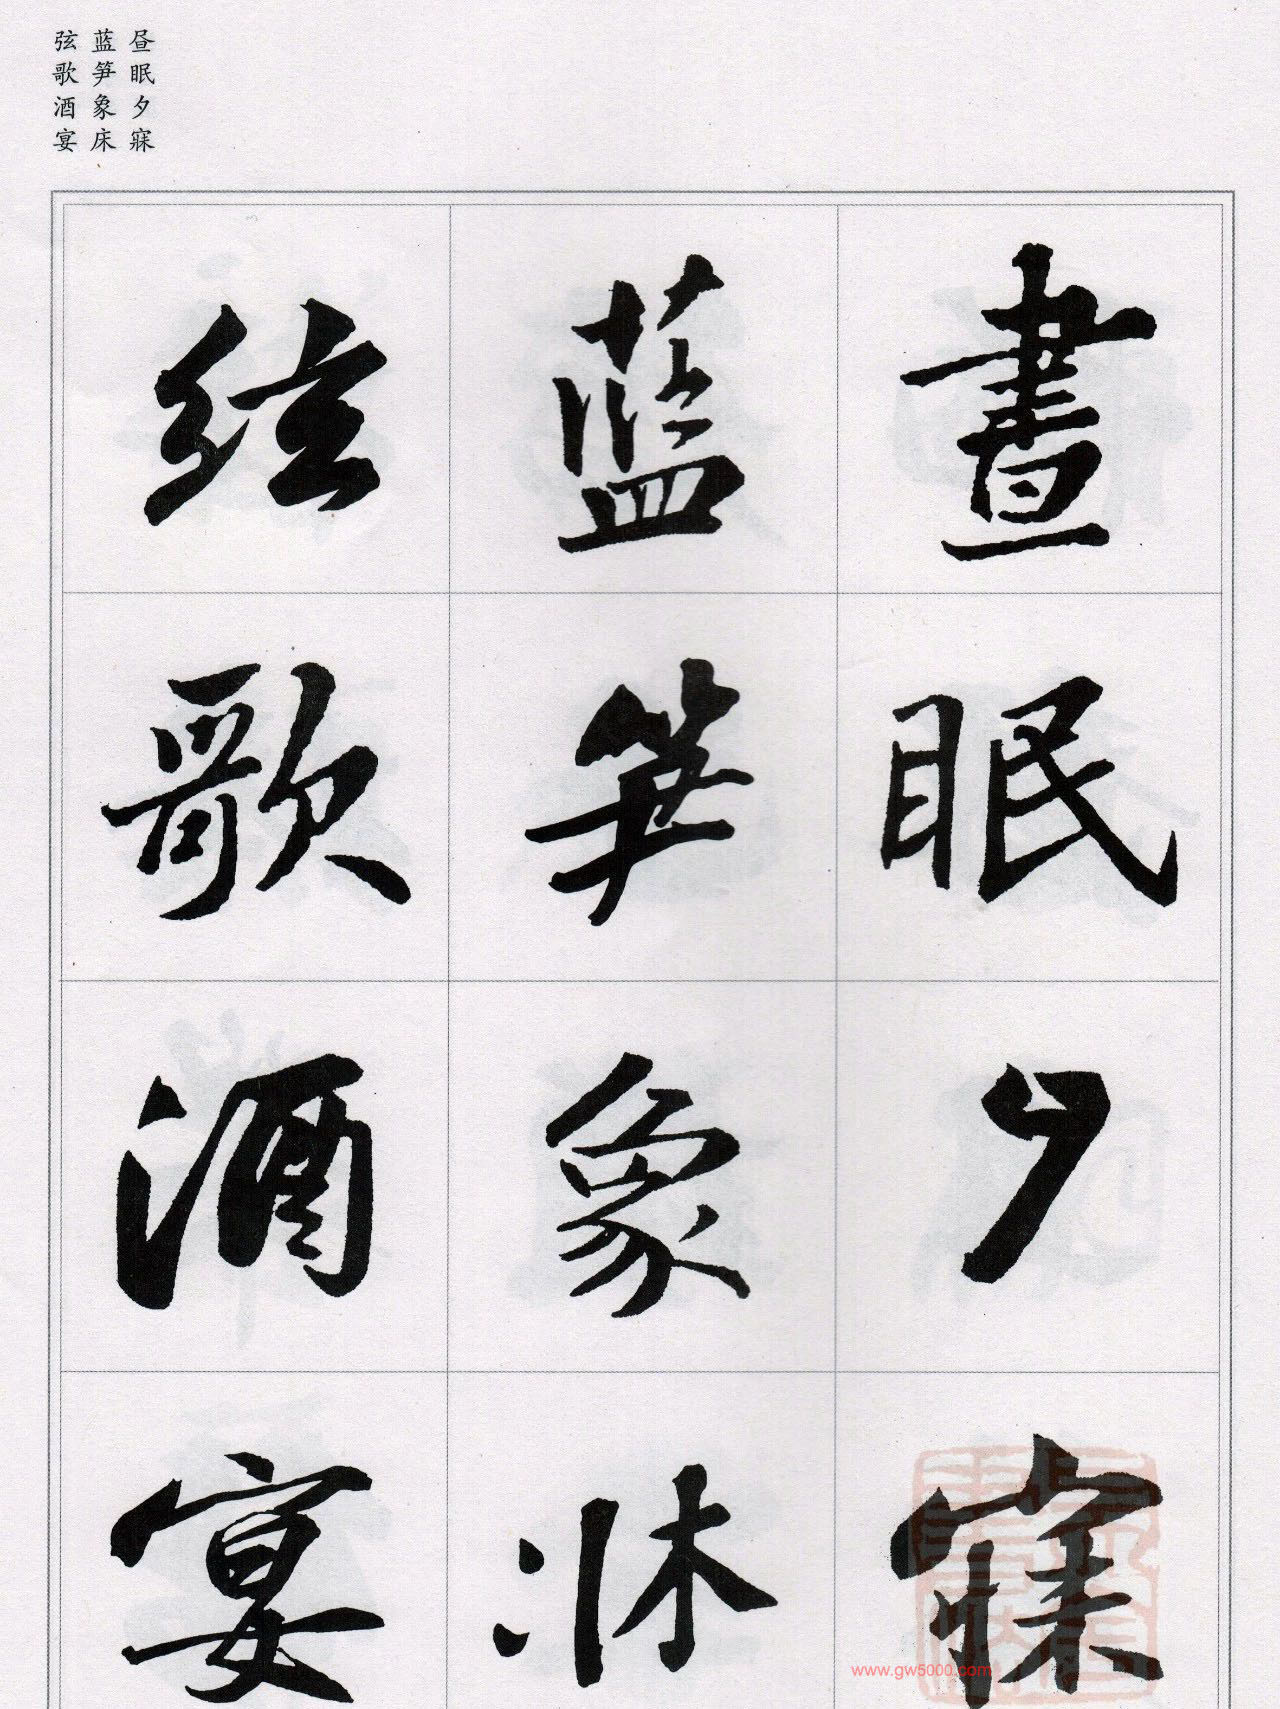 昼眠夕寐
蓝笋象床
弦歌酒宴
晝眠夕寐
蓝笋象牀
絃歌酒宴
www.gw5000.com